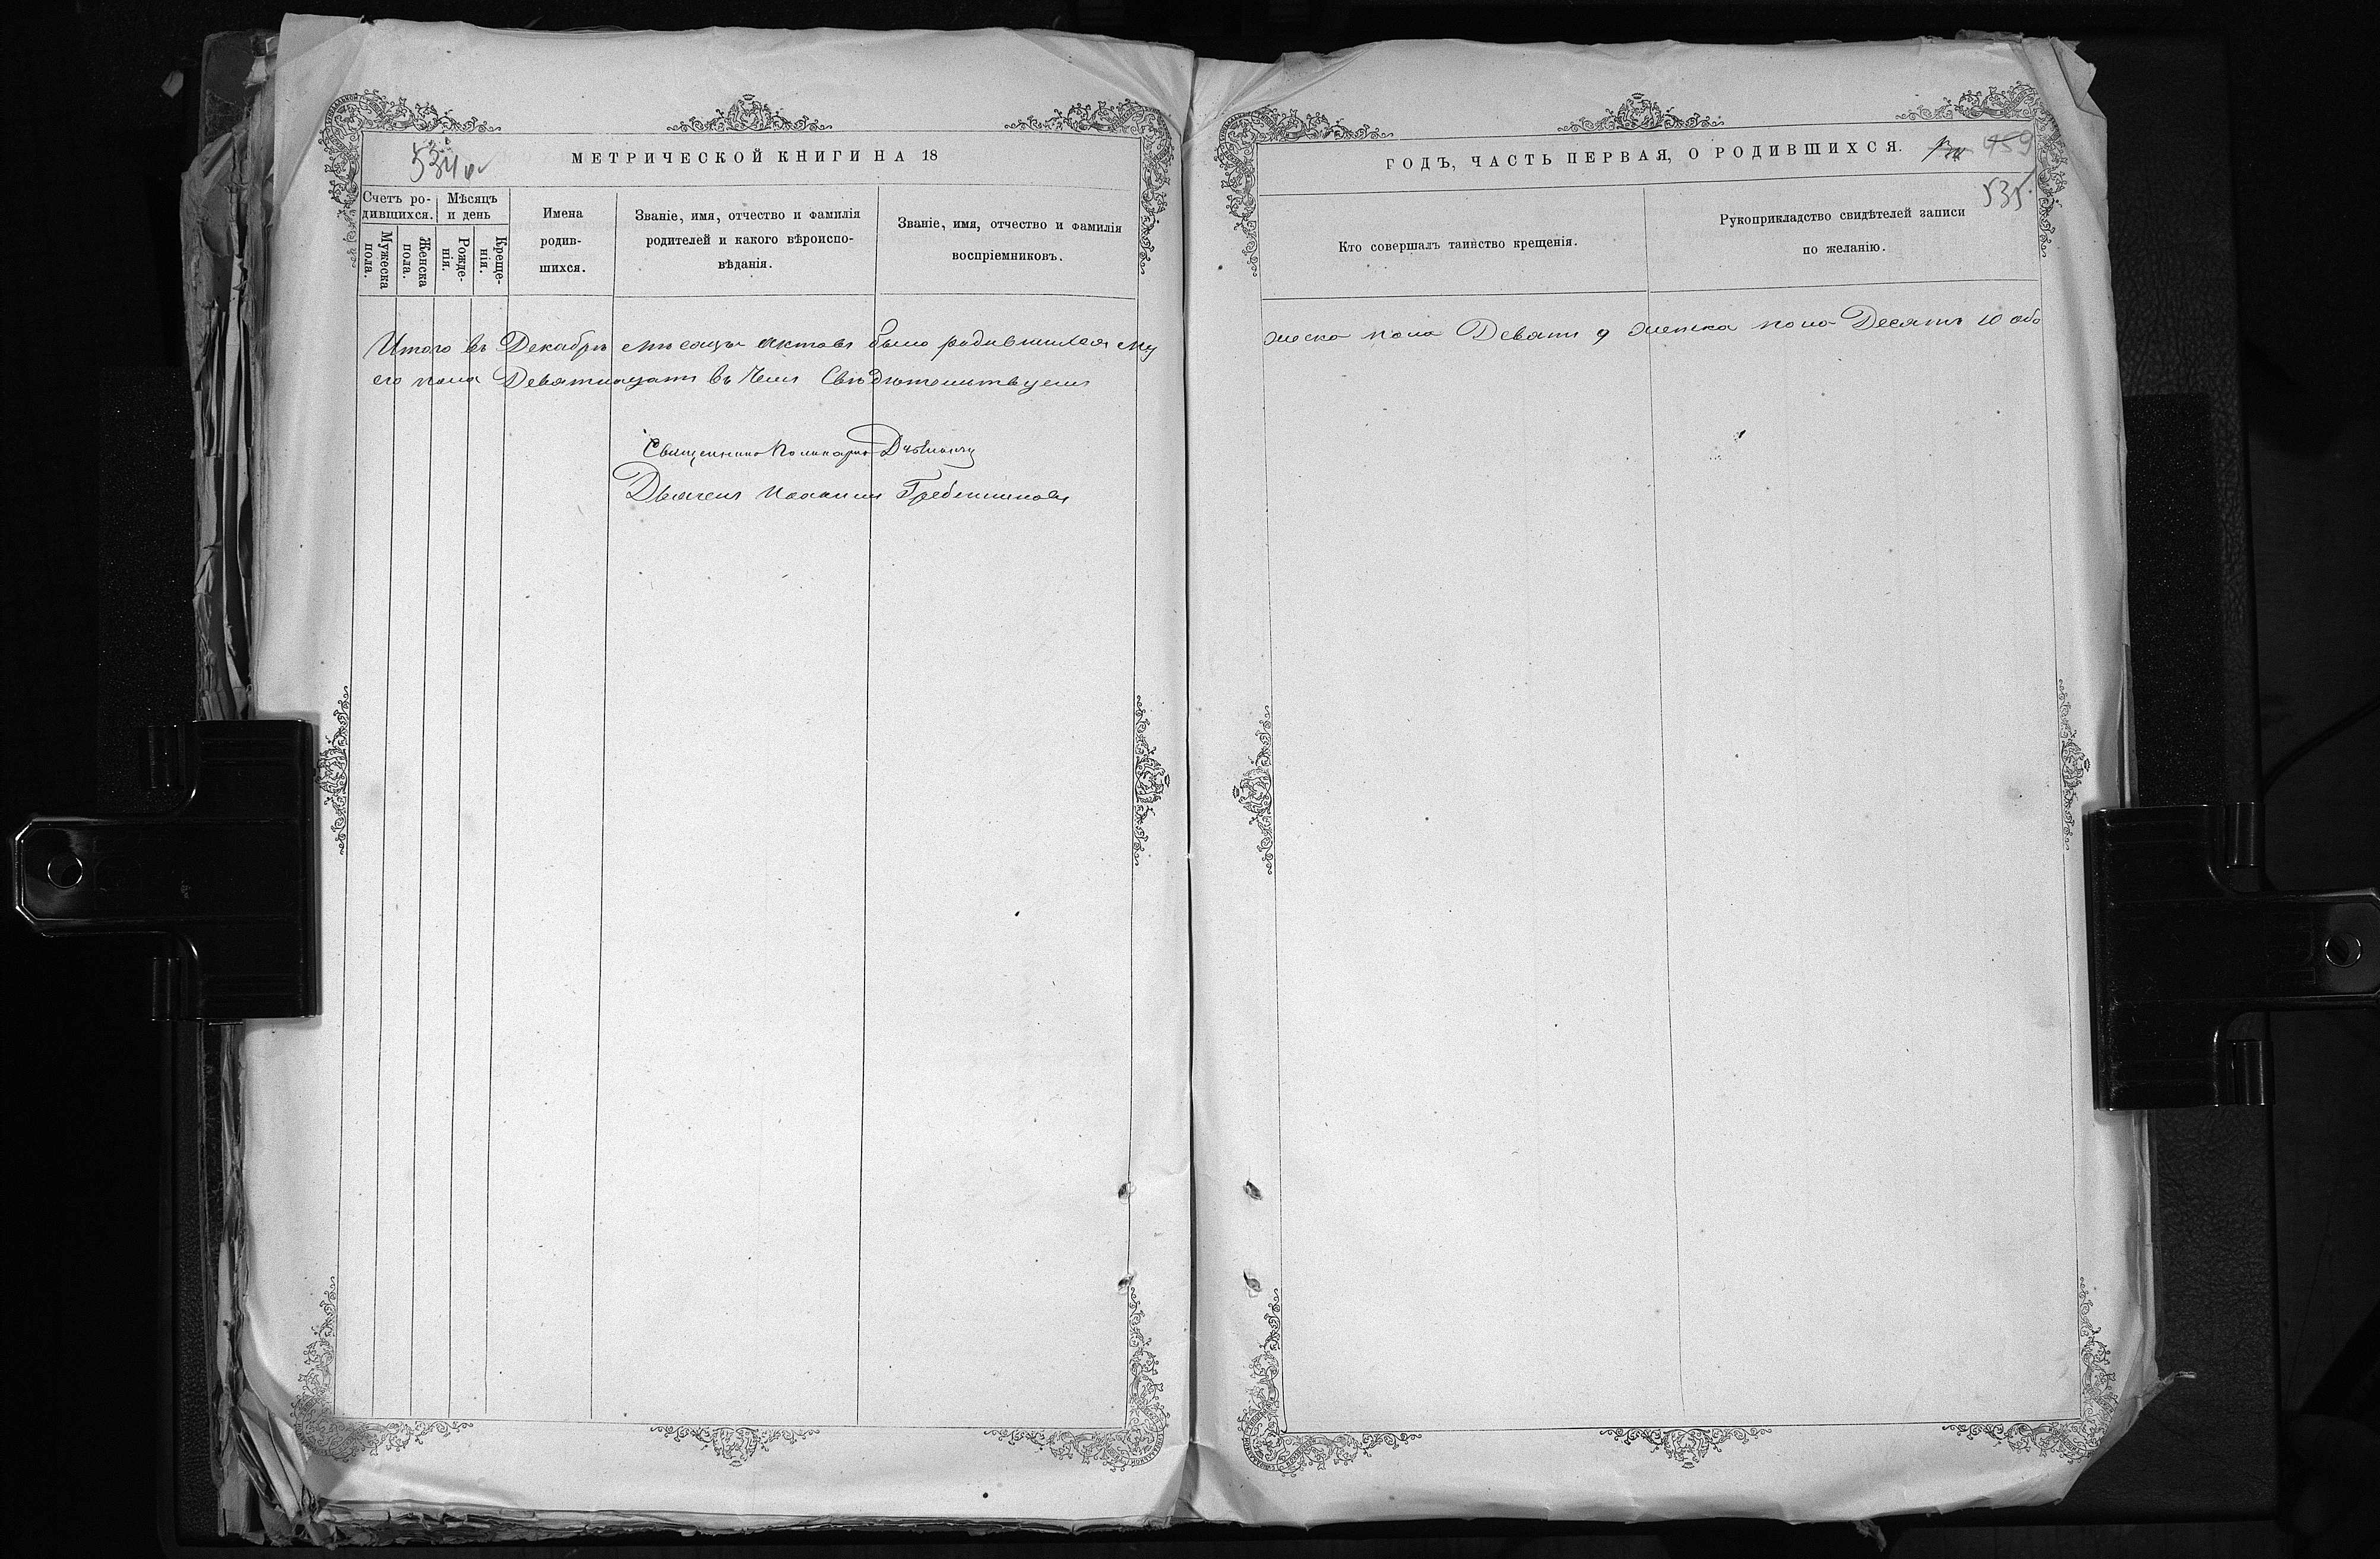 534 об
МЕТРИЧЕСКОЙ КНИГИ НА 18
Счетъ ро-
дившихся.
Мужеска
пола.
Женска
пола.
Мѣсяцъ
и день
Рожде-
нія.
Креще-
нія.
Имена
родив-
шихся.
Званіе, имя, отчество и фамилія
родителей и какого вѣроиспо-
вѣданія.
Званіе, имя, отчество и фамилія
воспріемниковъ.
Итого въ Декабрѣ мѣсяцѣ актовъ было родившихся му
его пола Девятнадцать въ чемъ Свидѣтельствуемъ
Священникъ Поликарпъ
Дьячекъ Иоаннъ Гребенщиковъ
ГОДЪ, ЧАСТЬ ПЕРВАЯ, О РОДИВШИХСЯ.
459
535
Кто совершалъ таинство крещенія.
Рукоприкладство свидѣтелей записи
по желанію.
жеска пола Девять 9 женска пола Десять 10 обо